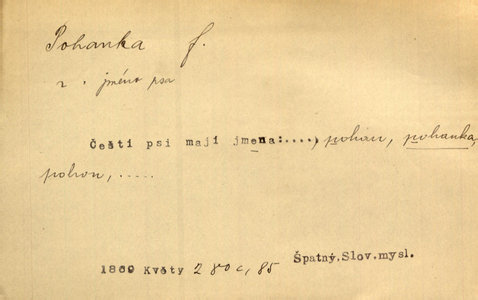 Pohanka f.
jméno psa
Čeští psi mají jmena:...., pohán, pohanka,
pohon, .....
Špatný.Slov.mysl.
1869 Květy 85